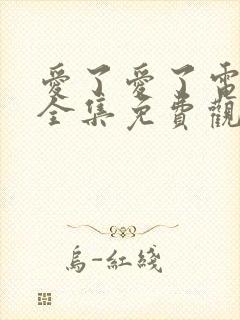 愛了愛了電
全集免費觀
烏-紅綫